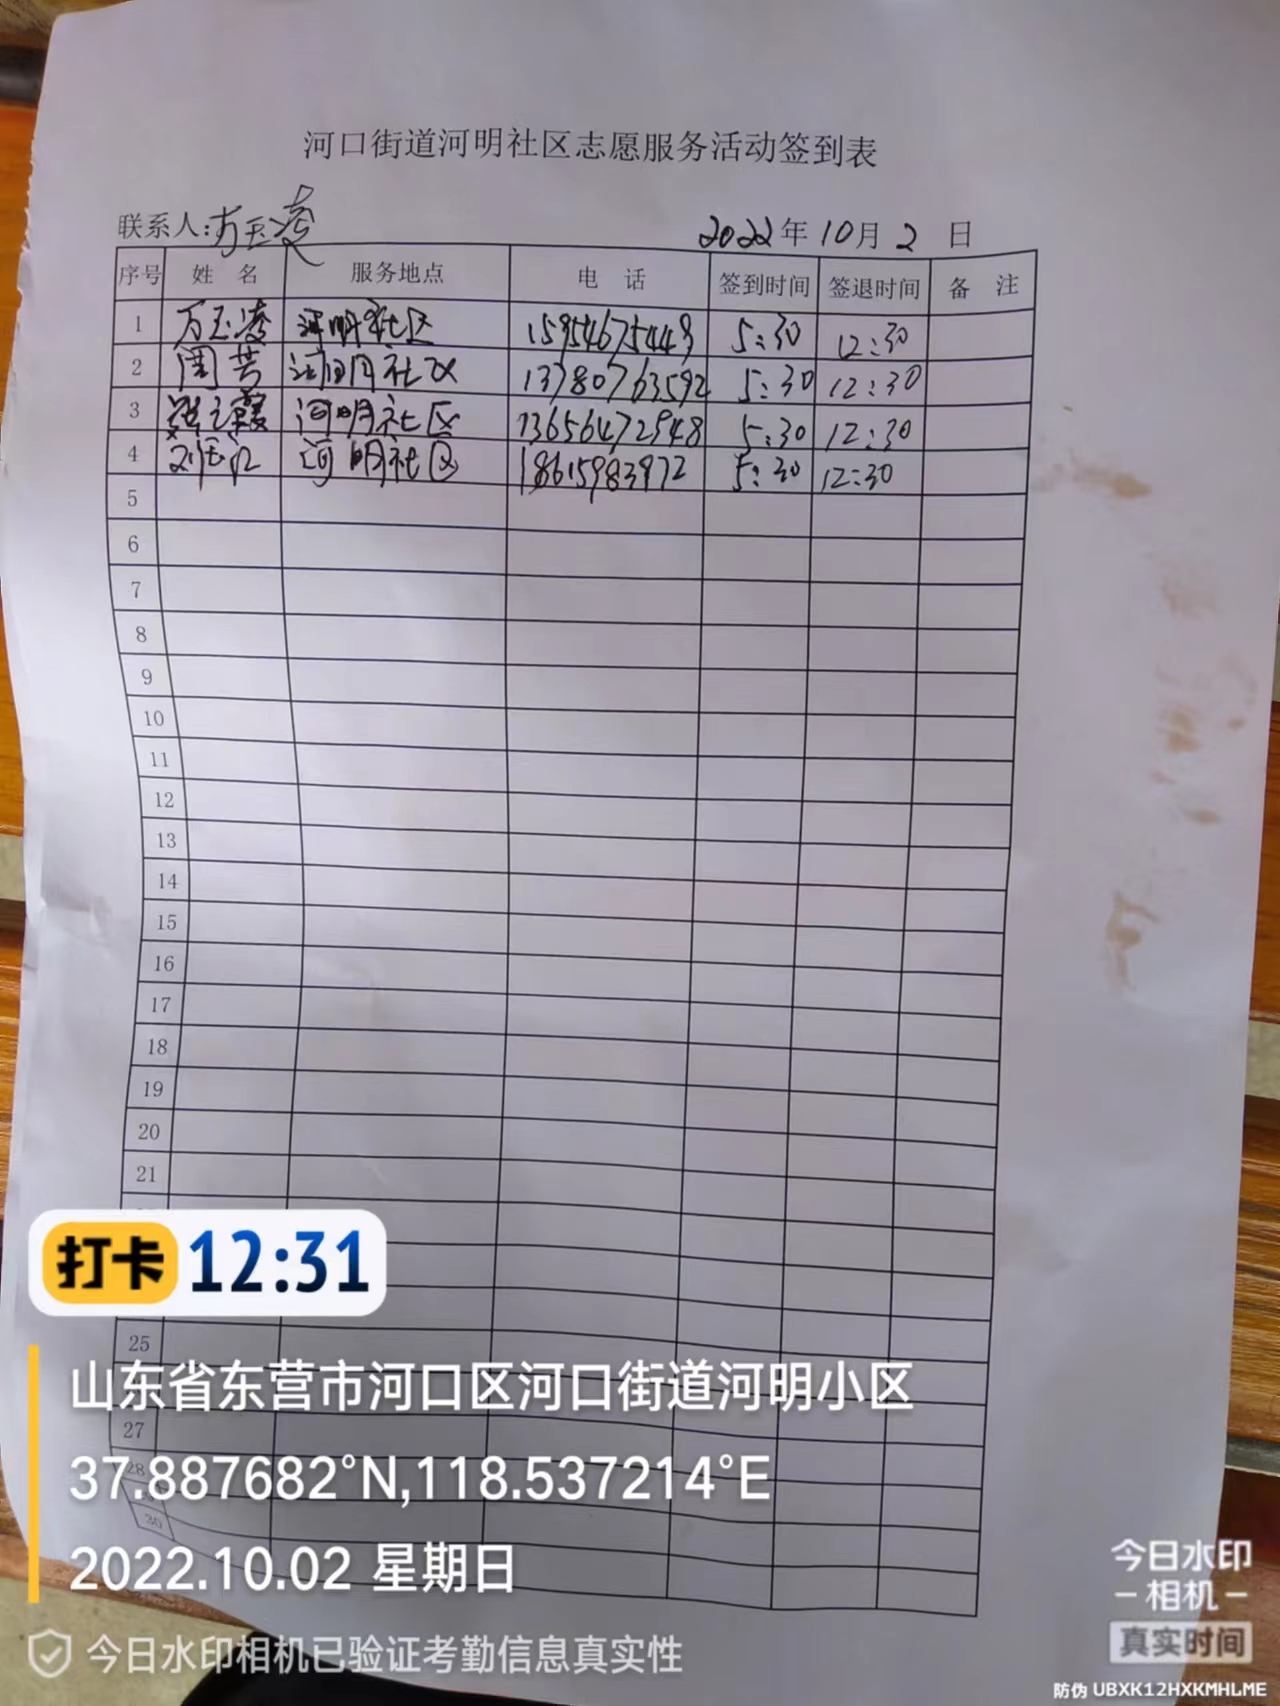 河口街道河明社区志愿服务活动签到表
联系人:万玉凌 2022年10月2日
序号 姓 名 服务地点 电 话 签到时间 签退时间 备 注
1 万玉凌 河明社区 15954675443 5:30 12:30
2 周芳 河明社区 13780763592 5:30 12:30
3 霞 河明社区 13656472948 5:30 12:30
4 刘 河明社区 18615983972 5:30 12:30
5
6
7
8
9
10
11
12
13
14
15
16
17
18
19
20
21
打卡 12:31
25
山东省东营市河口区河口街道河明小区
27
37.887682°N,118.537214°E
28
30
2022.10.02 星期日
今日水印
-相机-
真实时间
今日水印相机已验证考勤信息真实性
防伪 UBXK12HXKMHLME